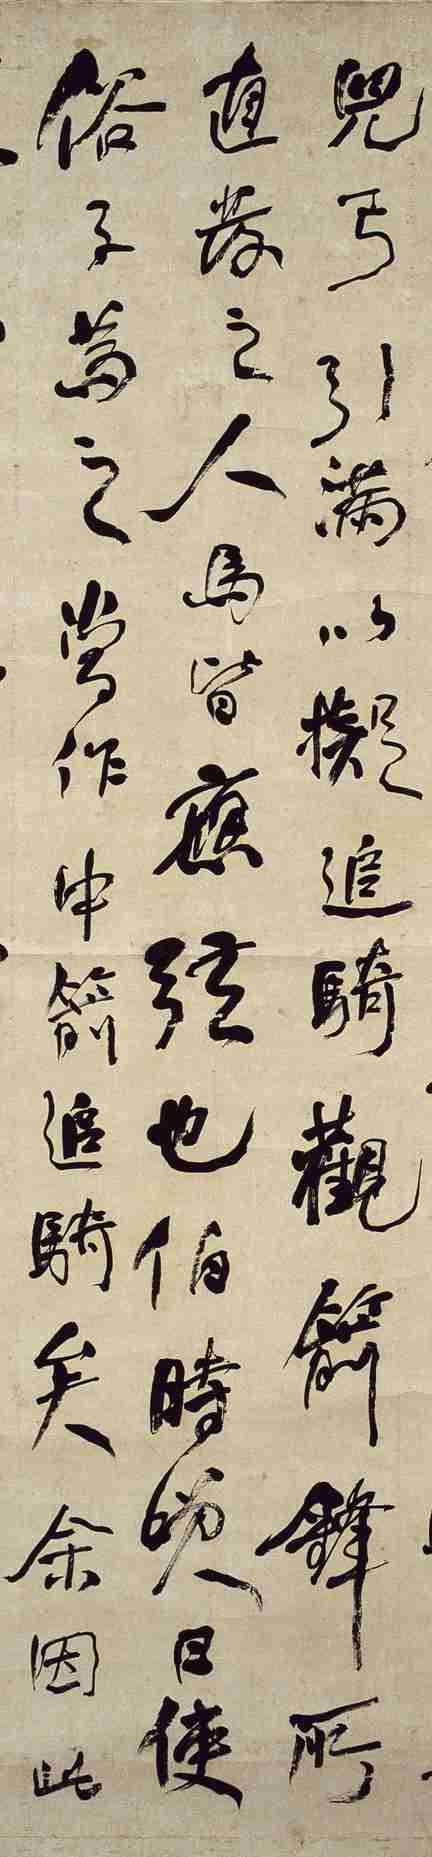 兒弓引滿以擬追騎觀箭鋒所
直發之人馬皆應弦也伯時笑曰使
俗子為之當作中箭追騎矣余因此